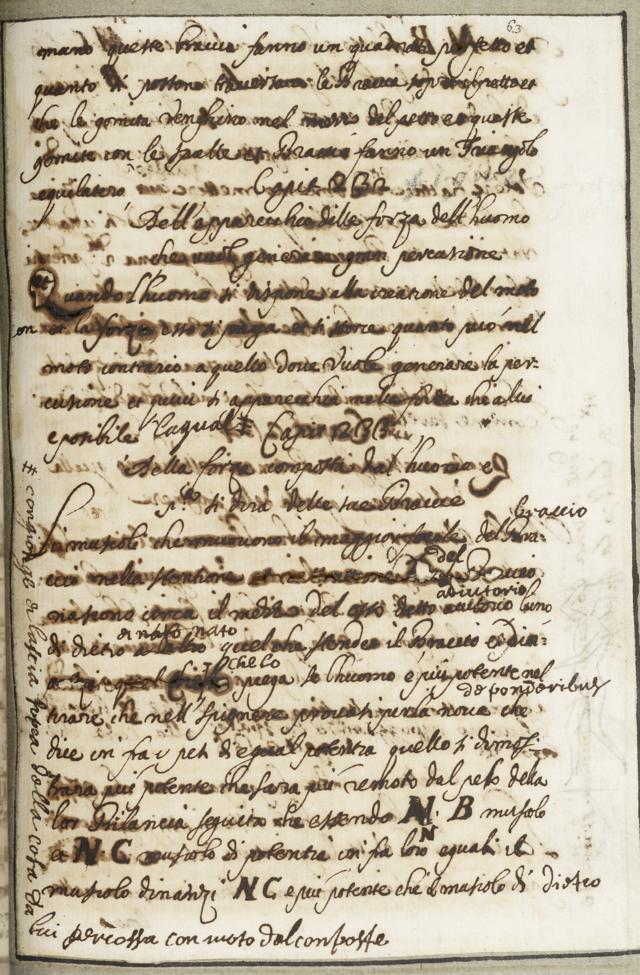 63
mano queste braccia fanno un quadrato perfetto et
quanto si possono traversare le braccia sopra il petto et
che le gomita venghino nel mezzo del petto e queste
gomite con le spalle et braccia fanno un Triangolo
equilatero Capit. 232
Dell'apparecchio della forza dell'huomo
che vuol generare gran percussione
Quando l'huomo si dispone alla creatione del moto
con la forza esso si piega et si storce quanto può nel
moto contrario a quello dove vuole generare la per-
cussione et quivi si apparecchia nella forza che a lui
è possibile la quale Capit. 233
Della forza composta dal huomo et
p.ª si dirà delle sue braccie
Li musioli che muovono il maggior fucile del braccio
nella stentione et retratione del braccio
nascono circa il mezo del osso detto adiutorio l'uno
di dietro a l'altro quel che stende il braccio è
di nanzi nato
che lo piega se l'huomo è più potente nel
tirare che nell'spignere provasi per la nona che
de ponderibus
dice in fra i pesi di egual potentia quello si dimos-
trara più potente che sara più remoto dal polo della
lor bilancia seguita che essendo N B musiolo
et N C musiolo di potentia in fra loro eguali il
musiolo dinanzi N C e più potente che il musiolo di dietro
congiunge e lascia poi dalla cosa da
lui percossa con moto dal composte